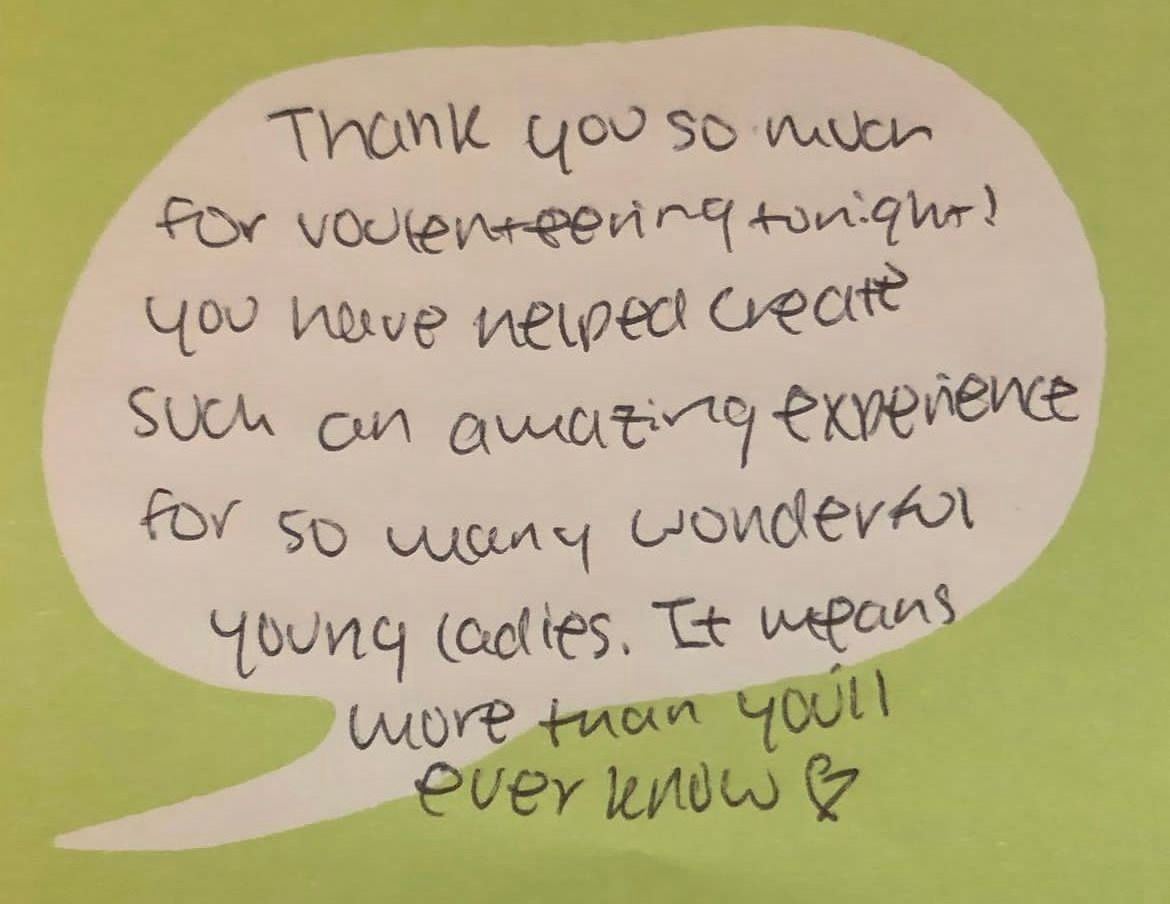 Thank you so much
for voulenteering tonight!
you have helped create
such an amazing experience
for so many wonderful
young ladies. It means
more than you'll
ever know ♡